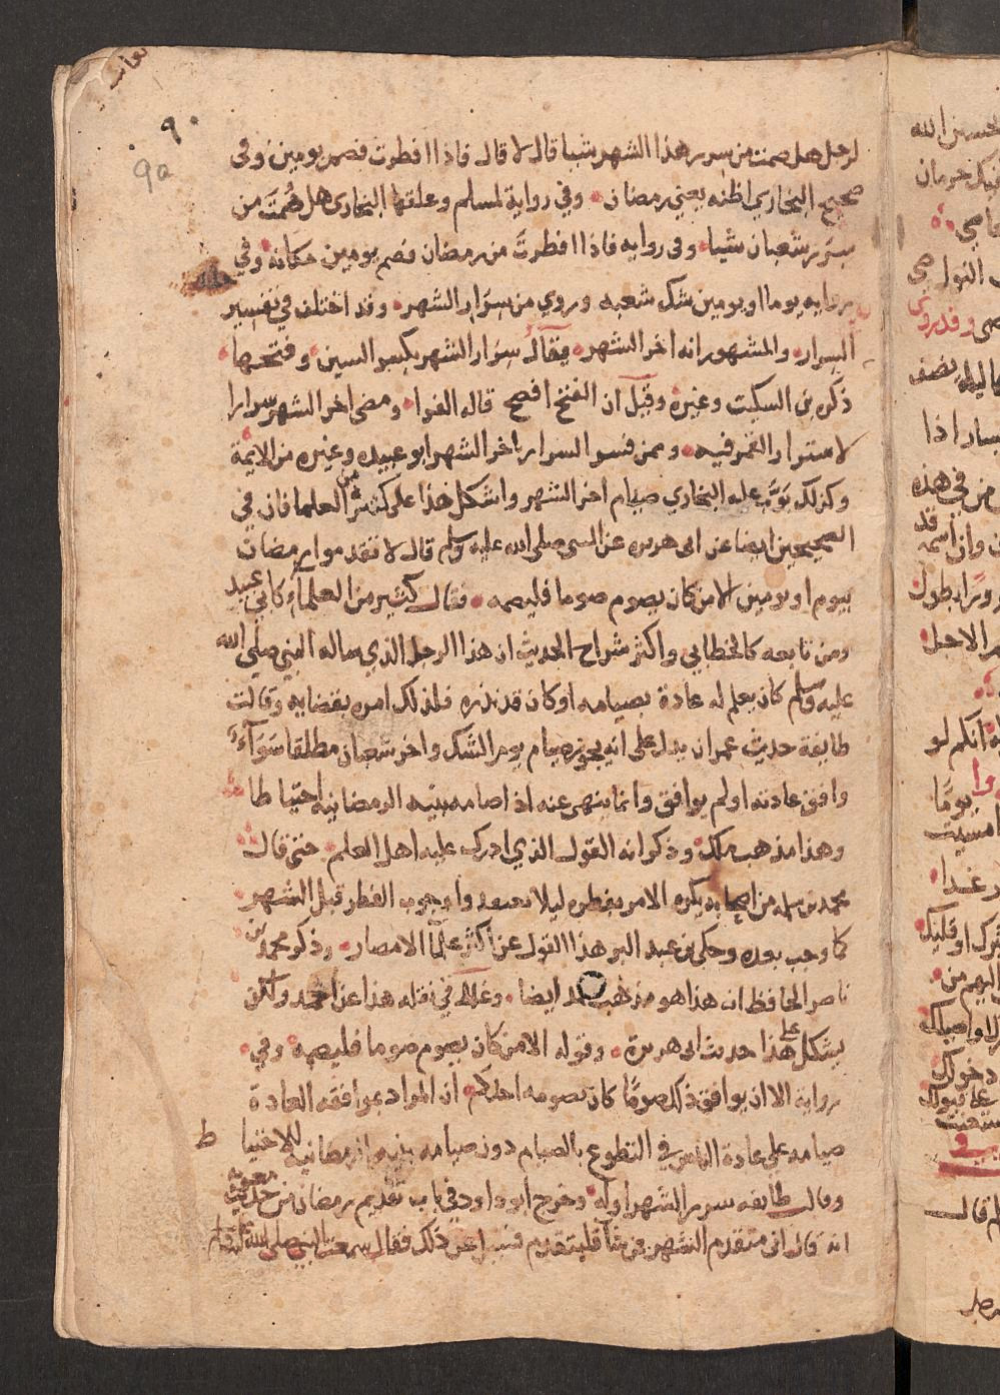 ٩٠
90
لرجل هل صمت من سرر هذا الشهر شيا قال لا قال فاذا افطرت فصم يومين وفي
صحيح البخاري اظنه يعني رمضان وفي رواية لمسلم وعلقها البخاري هل صُمتَ من
سرر شعبان شيا وفى روايه فاذا افطرتَ من رمضان فصم يومين مكانه وفي
روايه يوما او يومين شك شعبه وروي من سرار الشهر وقد اختلف في تفسير
السرار والمشهور انه اخر الشهر يقال سرار الشهر بكسر السين وفتحها
ذكره بن السكيت وغيره وقيل ان الفتح افصح قاله الفرا ومضى اخر الشهر سرارا
لاستسرار القمر فيه وممن فسر السرار باخر الشهر ابو عبيده وغيره من الايمة
وكذلك بَوَّب عليه البخاري صيام اخر الشهر واشكل هذا على كثير من العلما فان في
الصحيحين ايضا عن ابى هريره عن النبى صلى الله عليه وسلم قال لا تقدموا رمضان
بيوم او يومين الا من كان يصوم صوما فليصمه فقال كثير من العلماء كابي عبيد
ومن تابعه كالخطابي واكثر شراح الحديث ان هذا الرجل الذي ساله النبي صلى الله
عليه وسلم كان يعلم له عادة بصيامه او كان قد نذره فلذلك امره بقضايه وقالت
طايفة حديث عمران يدل على انه يجوز صيام يوم الشك واخر شعبان مطلقا سَوَآءً
وافق عادته او لم يوافق وانما ينهى عنه اذا صامه بنيه الرمضانيه احتياطا
وهذا مذهب ملك وذكر انه القول الذي ادرك عليه اهل العلم حتى قال
محمد بن مسلمه من اصحابه يكره الامر بفطره ليلا يعتقدوا وجوب الفطر قبل الشهر
كما وجب بعده وحكى بن عبد البر هذا القول عن اكثر علما الامصار وذكر محمد بن
ناصر الحافظ ان هذا هو مذهب احمد ايضا وغلط في نقله هذا عن احمد ولكن
يشكل على هذا حديث ابى هريرة وقوله الا من كان يصوم صوما فليصمه وفي
رواية الا ان يوافق ذلك صومًا كان يصومه احدكم ان المراد بموافقه العادة
صيامه على عادة الناس في التطوع بالصيام دون صيامه بنيه الرمضانيه للاحتيا ط
وقالت طايفه سرر الشهر اوله وخرج ابو داود في باب تقديم رمضان من حديث معويه
انه قال انى متقدم الشهر فمن شا فليتقدم فسيل عن ذلك فقال سمعت النبي صلى الله عليه وسلم